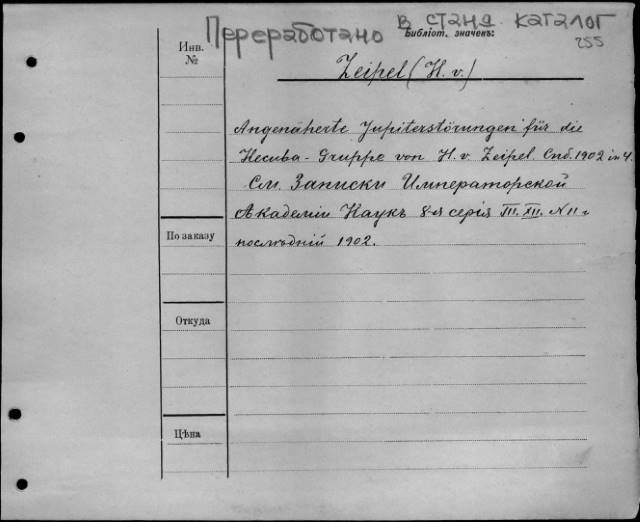 Переработано в станд. каталог
Инв. №
Библіот. значекъ:
255
Zeipel (H. v.)
Angenäherte Jupiterstörungen für die
Hecuba-Gruppe von H. v. Zeipel. Спб. 1902 in 4.
См. Записки Императорской
Академіи Наукъ 8-я серія III. XII. N 11 и
послѣдній 1902.
По заказу
Откуда
Цѣна